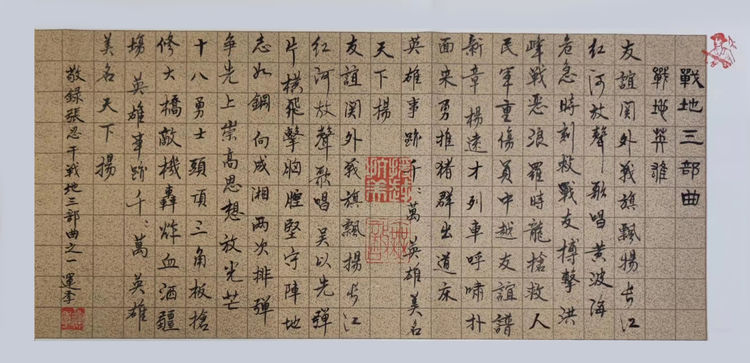 戰地三部曲
戰地英雄
友誼関外戰旗飄揚長江
红河放聲歌唱黄波海
危急時刻救戰友搏擊洪
峰戰恶浪羅時龍搶救人
民軍重傷員中越友誼譜
新章楊遠才列車呼嘯扑
面来勇推猪群出道床
英雄事跡千：萬英雄美名
天下揚
友誼関外戰旗飄揚長江
红河放聲歌唱吴以先弹
片横飛擊胸膛堅守陣地
志如鋼向成湘两次排弹
争先上崇高思想放光芒
十八勇士頭頂三角板搶
修大橋敵機轟炸血洒疆
場英雄事跡千：萬英雄
美名天下揚
敬録張忍干戰地三部曲之一